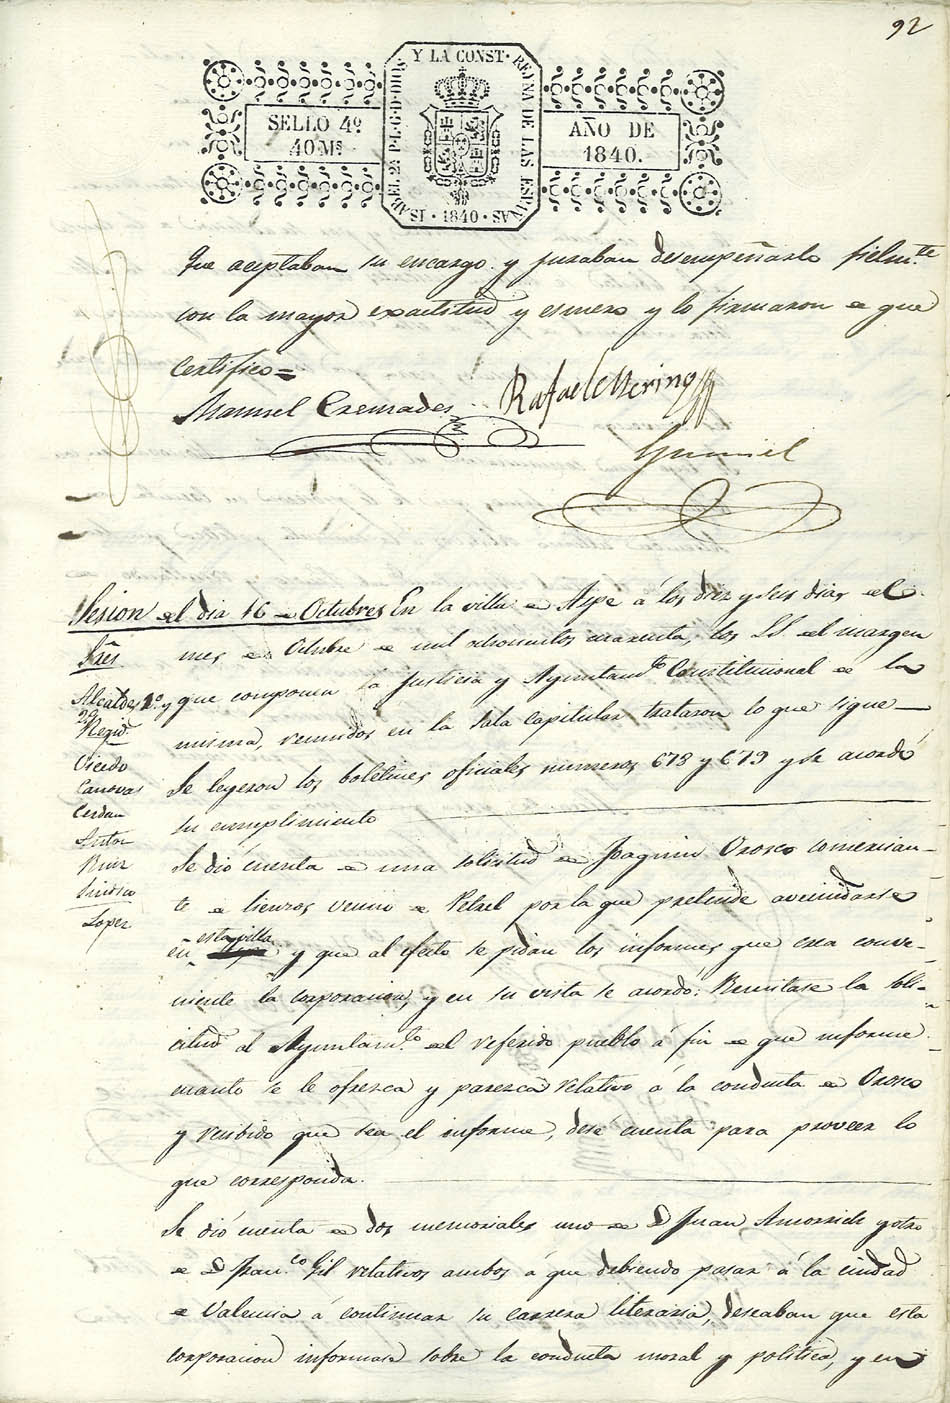 92
ISABEL 2ª P. L. G. D. DIOS Y LA CONST. REYNA DE LAS ESPAÑAS · 1840 ·
SELLO 4º
40 Ms
AÑO DE
1840.
Que aceptaban su encargo y juraban desempeñarlo fielm.te
con la mayor exactitud y esmero y lo firmaron de que
Certifico =
Manuel Cremades
Rafael Merino
Gumiel
Sesion del dia 16 de Octubre, En la villa de Aspe á los diez y seis dias del
mes de Octubre de mil ochocientos cuarenta, los SS. del margen
y que componen la Justicia y Ayuntam.to Constitucional de la
misma, reunidos en la sala capitular trataron lo que sigue
Se leyeron los boletines oficiales numeros 678 y 679 y se acordó
su cumplimiento
Sres
Alcaldes 1º y 2º
Regid.
Vicedo
Canovas
Cerdan
Anton
Ruiz
Lopez
Se dió cuenta de una solicitud de Joaquin Orosco comercian-
te de lienzos vecino de Petrel por la que pretende avecindarse
en esta villa y que al efecto se pidan los informes que crea conve-
niente la corporacion, y en su vista se acordó: Remitase la soli-
citud al Ayuntam.to del referido pueblo á fin de que informe
cuanto se le ofresca y paresca relativo á la conducta de Orosco
y recibido que sea el informe, dese cuenta para proveer lo
que corresponda.
Se dió cuenta de dos memoriales uno de D. Juan Amorrich y otro
de D. Fran.co Gil relativos ambos á que debiendo pasar á la ciudad
de Valencia á continuar su carrera literaria, deseaban que esta
corporacion informase sobre la conducta moral y politica, y en